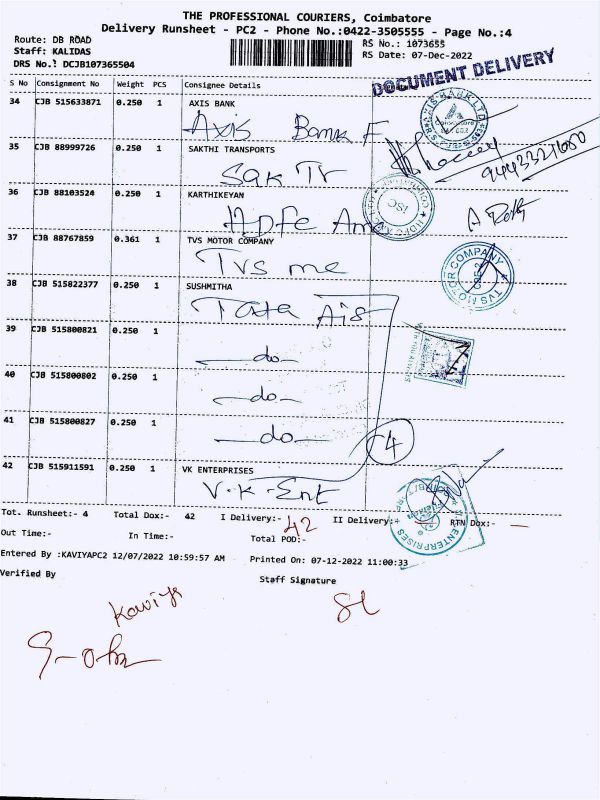 THE PROFESSIONAL COURIERS, Coimbatore
Delivery Runsheet - PC2 - Phone No.:0422-3505555 - Page No.:4
Route: DB ROAD
Staff: KALIDAS
DRS No.: DCJB107365504
RS No.: 1073655
RS Date: 07-Dec-2022
DOCUMENT DELIVERY
S No Consignment No Weight PCS Consignee Details
34 CJB 515633871 0.250 1 AXIS BANK
Axis Bank F
35 CJB 88999726 0.250 1 SAKTHI TRANSPORTS
Sak Tr
36 CJB 88103524 0.250 1 KARTHIKEYAN
37 CJB 88767859 0.361 1 TVS MOTOR COMPANY
TVS MOTOR COMPANY
Tvs me
38 CJB 515822377 0.250 1 SUSHMITHA
Tata Ais
39 CJB 515800821 0.250 1
-do-
40 CJB 515800802 0.250 1
-do-
41 CJB 515800827 0.250 1
-do-
4
42 CJB 515911591 0.250 1 VK ENTERPRISES
V.K.Ent
Tot. Runsheet:- 4 Total Dox:- 42 I Delivery:- 42 II Delivery:- RTN Dox:- —
Out Time:- In Time:- Total POD:-
Entered By :KAVIYAPC2 12/07/2022 10:59:57 AM Printed On: 07-12-2022 11:00:33
Verified By Staff Signature
Kaviya